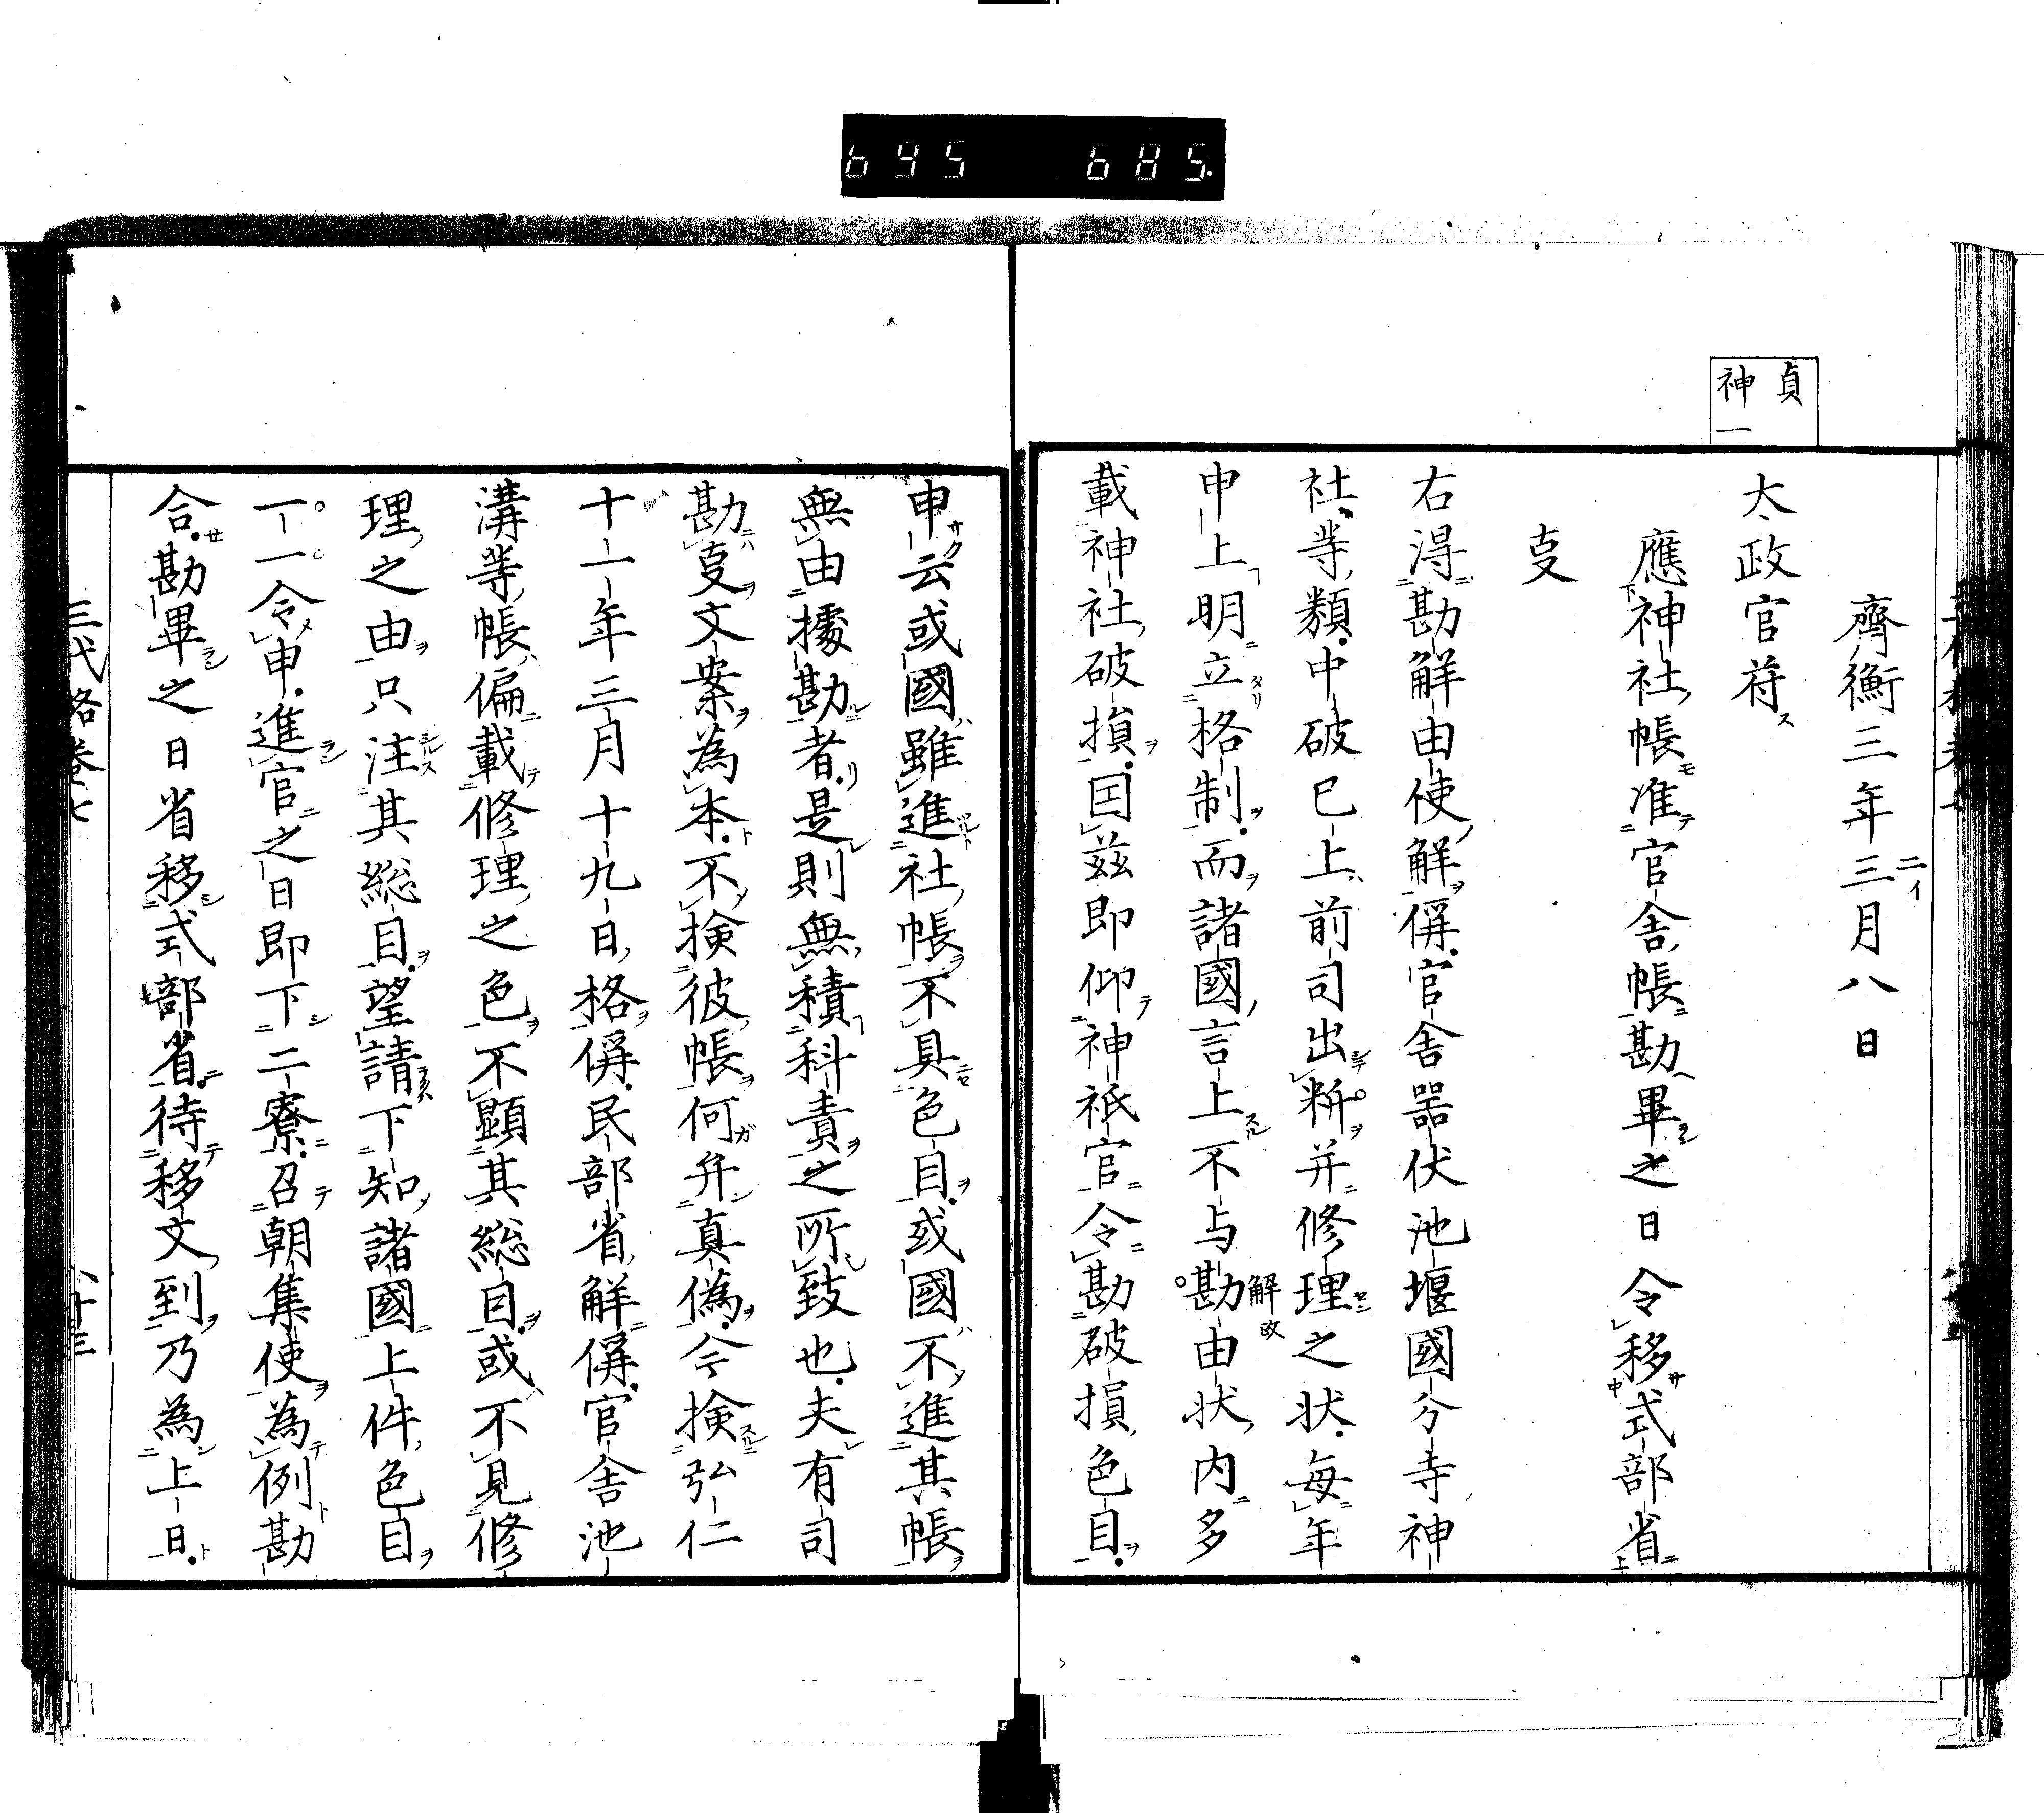 695 685.
貞
神一
齊衡三年三月八日
二イ
太政官符
應神社帳准官舎帳勘畢之日令移式部省
㕝
右得勘解由使解偁官舎器伏池堰國分寺神
社等類中破已上前司出断并修理之状毎年
申上明立格制而諸國言上不与勘由状内多
解
改
載神社破損因茲即仰神祇官令勘破損色目
申云或國雖進社帳不具色目或國不進其帳
無由據勘者是則無積科責之所致也夫有司
勘㕝文案為本不検彼帳何弁真偽今検弘仁
十一年三月十九日格偁民部省解偁官舎池
溝等帳偏載修理之色不顕其総目或不見修
理之由只注其総目望請下知諸國上件色目
一一令申進官之日即下二寮召朝集使為例勘
合勘畢之日省移式部省待移文到乃為上日
三代格巻七
八十三